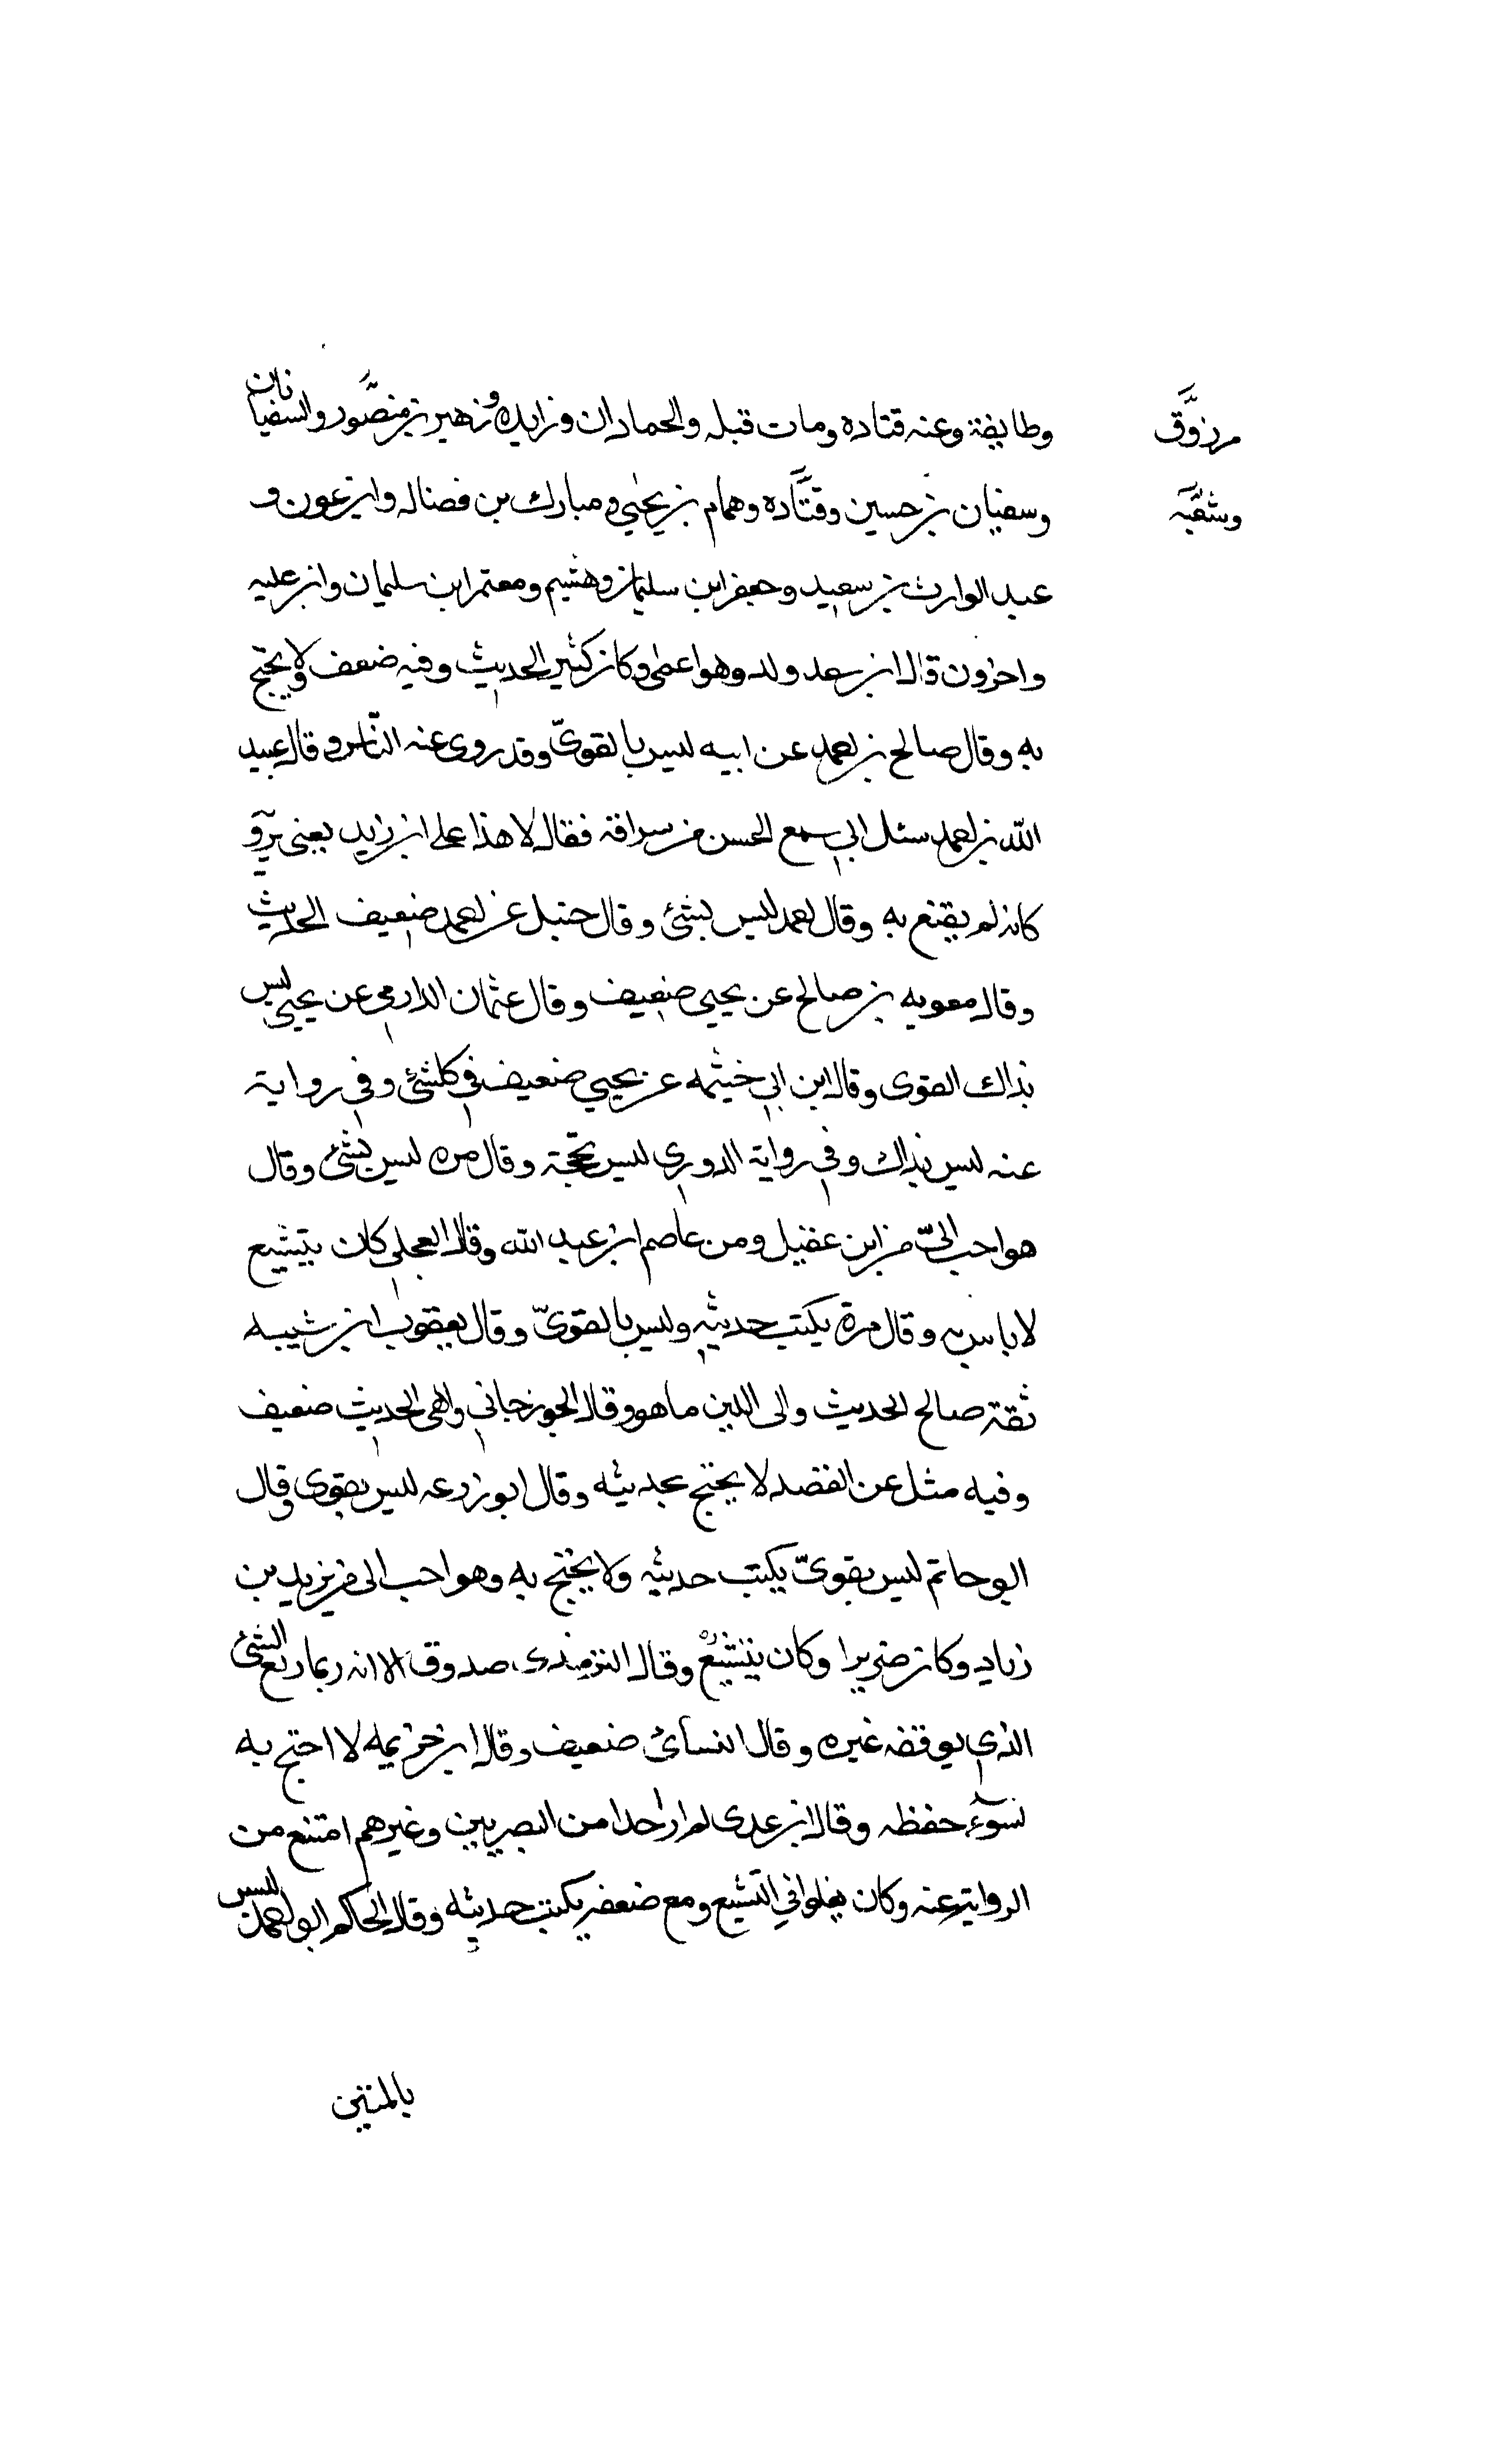 وطايفة وعنه قتاده ومات قبله والحمادان وزايده وزهير بن منصور والسفيانان
مرزوق
وسفيان بن حسين وقتاده وهمام بن يحيي ومبارك بن فضاله وابن عون و
وشعبه
عبد الوارث بن سعيد وجعفر ابن سليمان وهشيم ومعتمر ابن سليمان وابن عليه
واخرون قال ابن سعد ولد وهو اعمى وكان كثير الحديث وفيه ضعف ولا يحتج
به وقال صالح بن احمد عن ابيه ليس بالقويّ وقد روى عنه النّاس وقال عبيد
اللّه بن احمد سئل ابي سمع الحسن من سراقه فقال لا هذا على ابن زايد يعنى يرو
كانه لم يقنع به وقال احمد ليس بشئ وقال حنبل عن احمد ضعيف الحديث
وقال معويه بن صالح عن يحيي ضعيف وقال عثمان الدارمي عن يحيي ليس
بذاك القوى وقال ابن ابي خيثمه عن يحيي ضعيف في كلشئ وفي رواية
عنه ليس بذاك وفي رواية الدوري ليس بحجة وقال مره ليس بشئ وقال
هو احب اليّ من ابن عقيل ومن عاصم ابن عبد الله وقال العجلي كان يتشيع
لا باس به وقال مرة يكتب حديثه وليس بالقويّ وقال يعقوب ابن شيبه
ثقة صالح الحديث والى اللين ما هو وقال الجوزجاني واهى الحديث ضعيف
وفيه مثل عن القصد لا يحتج بحديثه وقال ابو زرعه ليس بقوى وقال
ابو حاتم ليس بقويّ يكتب حديثه ولا يحتج به وهو احب الى من يزيد بن
زياد وكان ضريرا وكان يتشيع وقال الترمذى صدوق الا انه ربما رفع الشئ
الذي يوقفه غيره وقال النسائ ضعيف وقال ابن خزيمه لا احتج به
لسوء حفظه وقال ابن عدى لم ار احدا من البصريين وغيرهم امتنع من
الرواية عنه وكان يغلوا في التشيع ومع ضعفه يكتب حديثه وقال الحاكم ابو احمد ليس
بالمتين